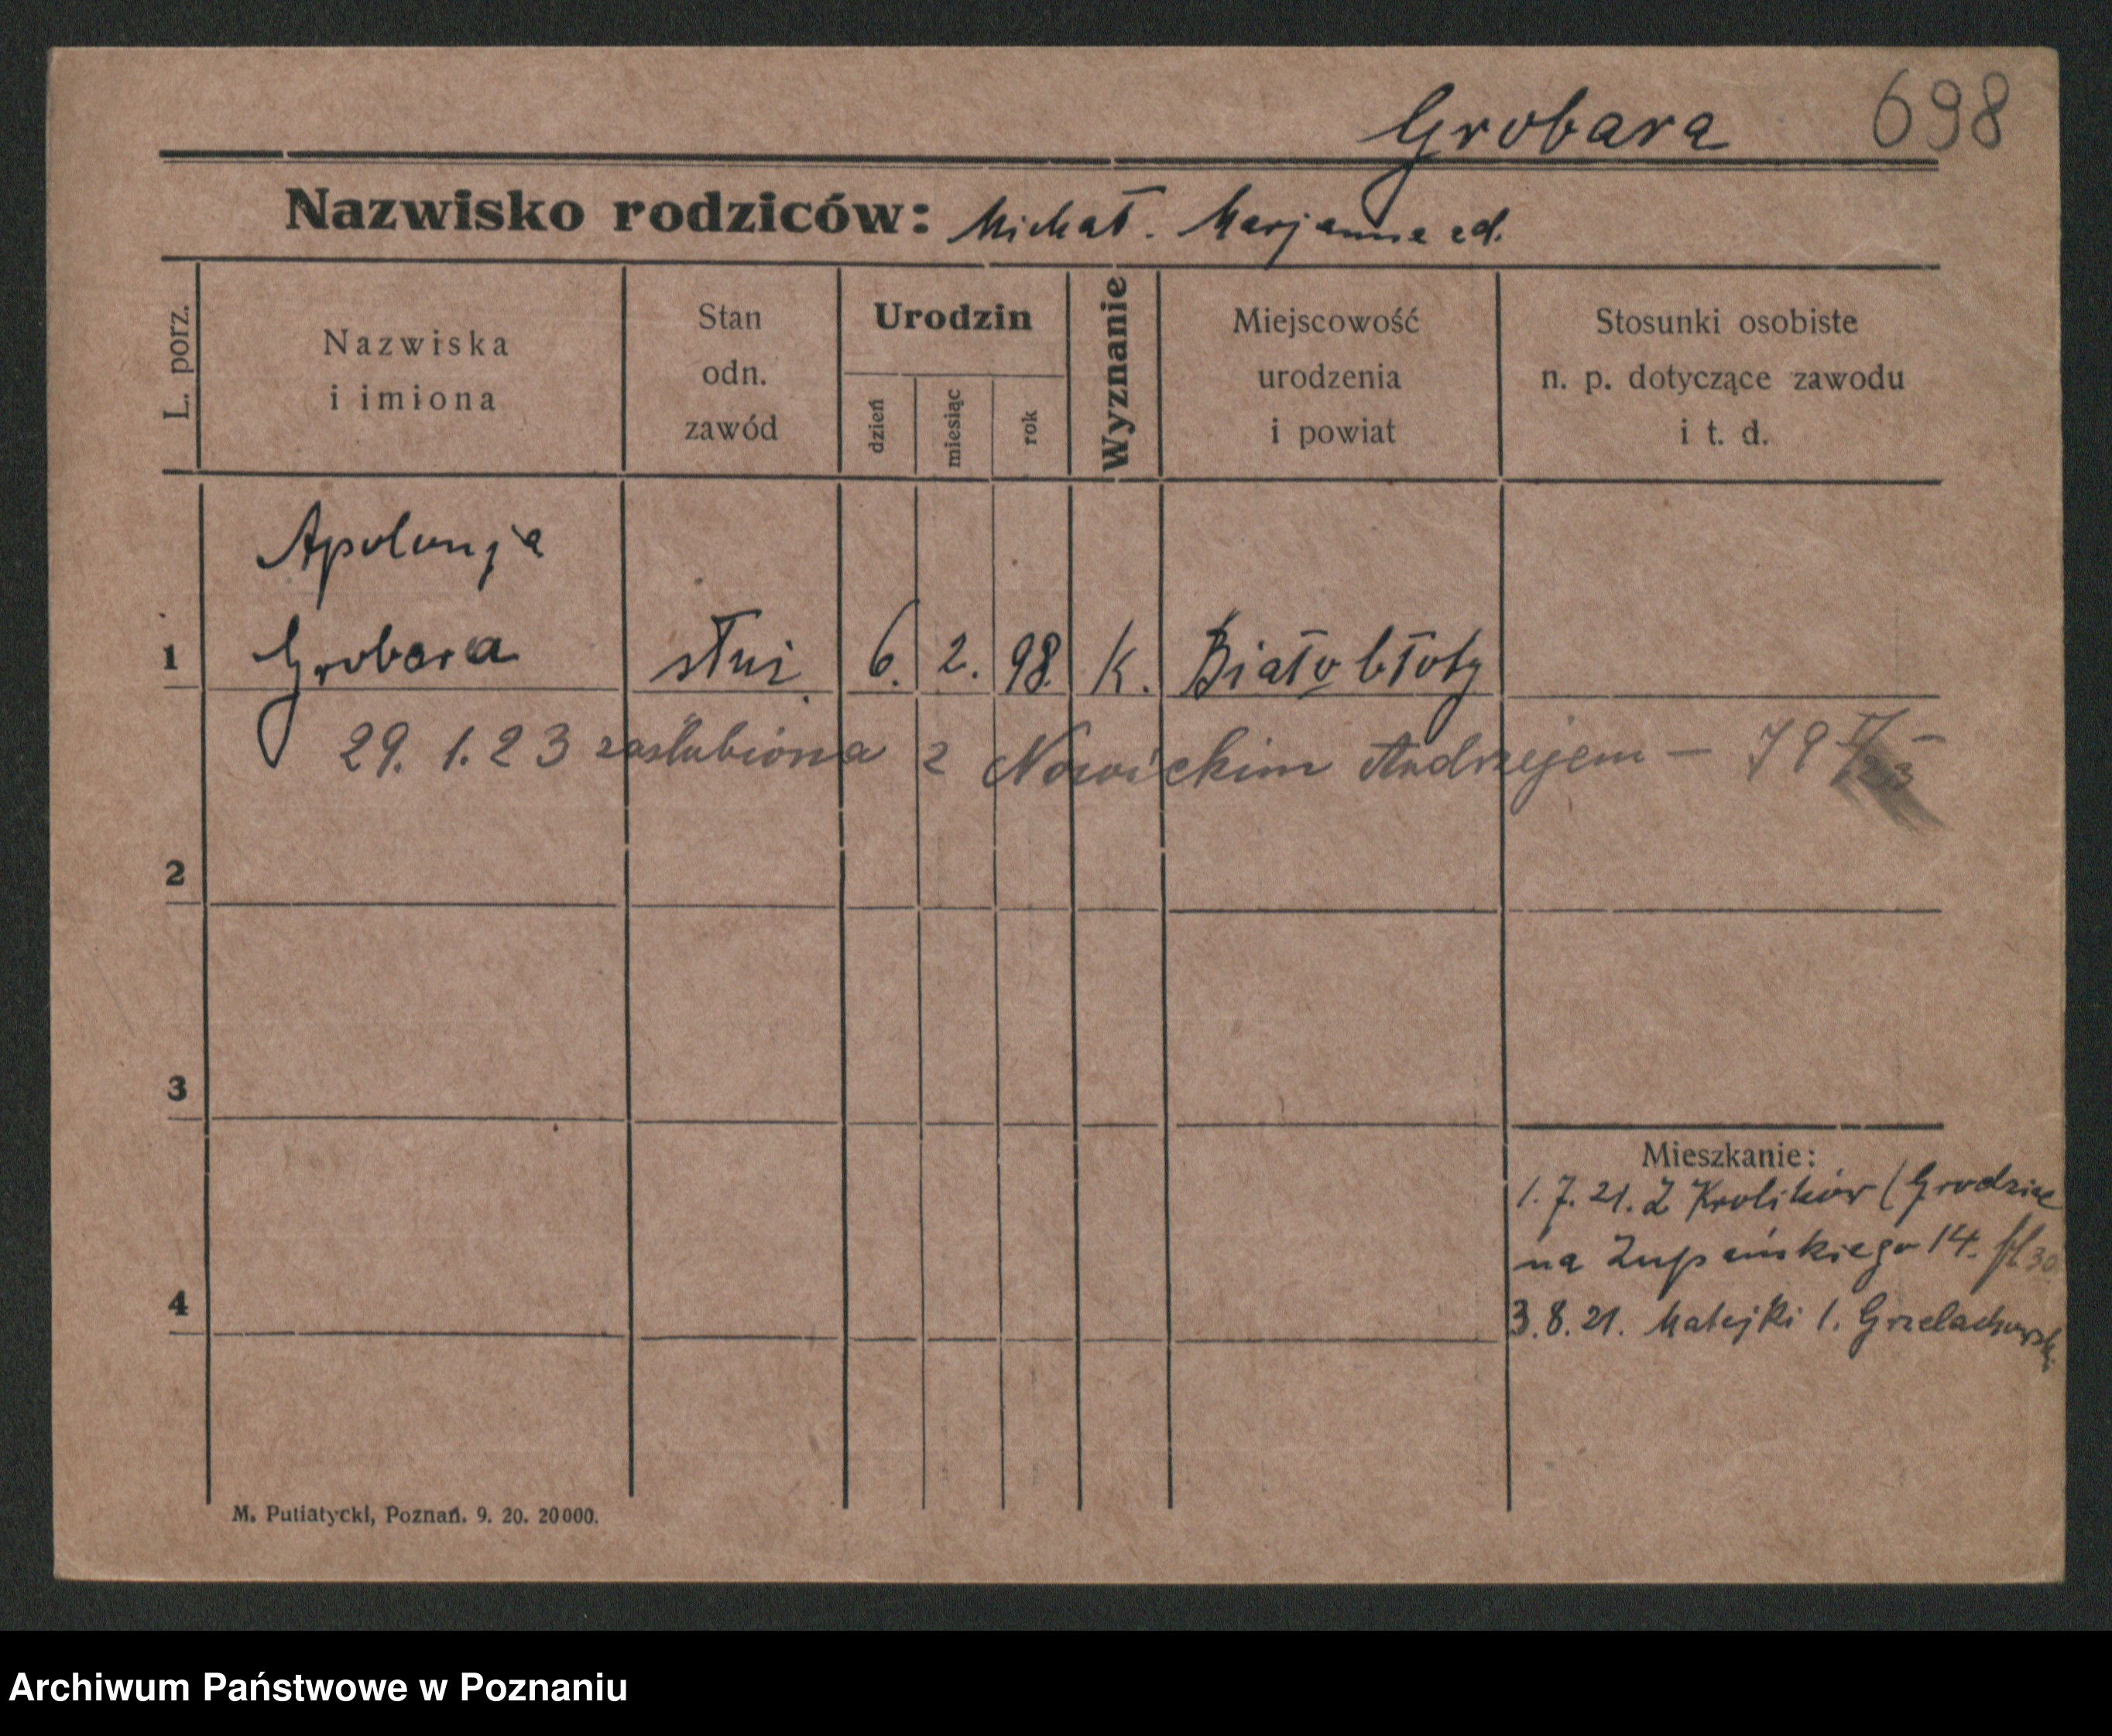 Grobara 698
Nazwisko rodziców: Michał. Marjanna
L. porz.
Nazwiska
i imiona
Stan
odn.
zawód
Urodzin
dzień
miesiąc
rok
Wyznanie
Miejscowość
urodzenia
i powiat
Stosunki osobiste
n. p. dotyczące zawodu
i t. d.
Apolonja
1 Grobara służ. 6. 2. 98. K. Białobłoty
29. 1. 23 zaślubiona z Nowickim Andrzejem — 79
2
3
Mieszkanie:
1. 7. 21. Z Królików (Grodziec
na Żupańskiego 14.
4
3. 8. 21. Matejki 1. Grzelachowski
M. Putiatycki, Poznań. 9. 20. 20000.
Archiwum Państwowe w Poznaniu